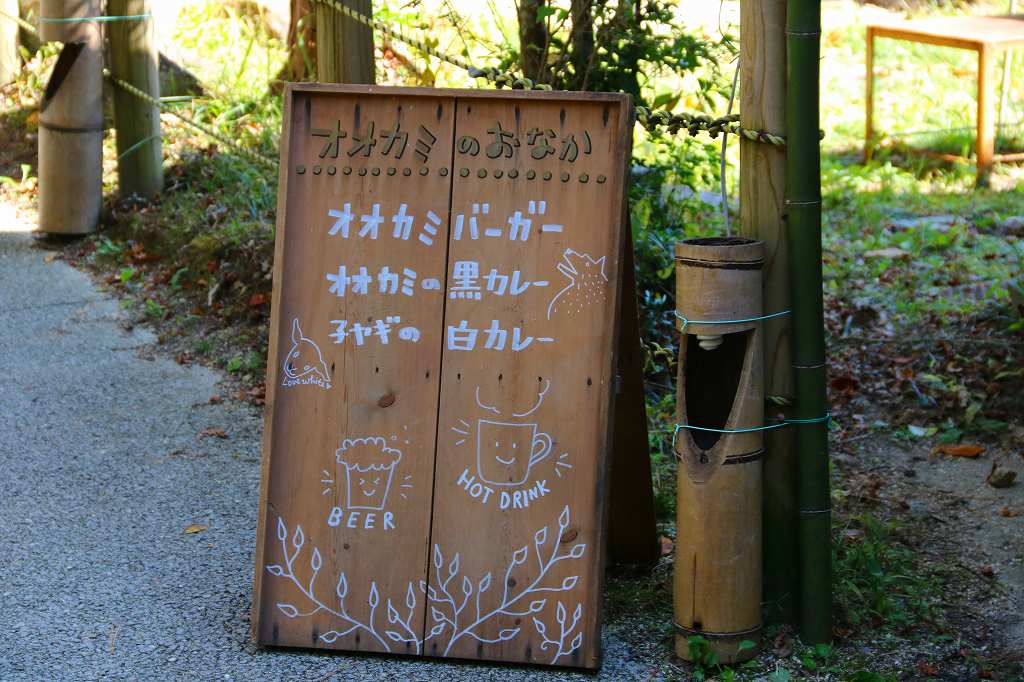 オオカミのおなか
オオカミバーガー
オオカミの黒カレー
子ヤギの 白カレー
Love white
BEER
HOT DRINK